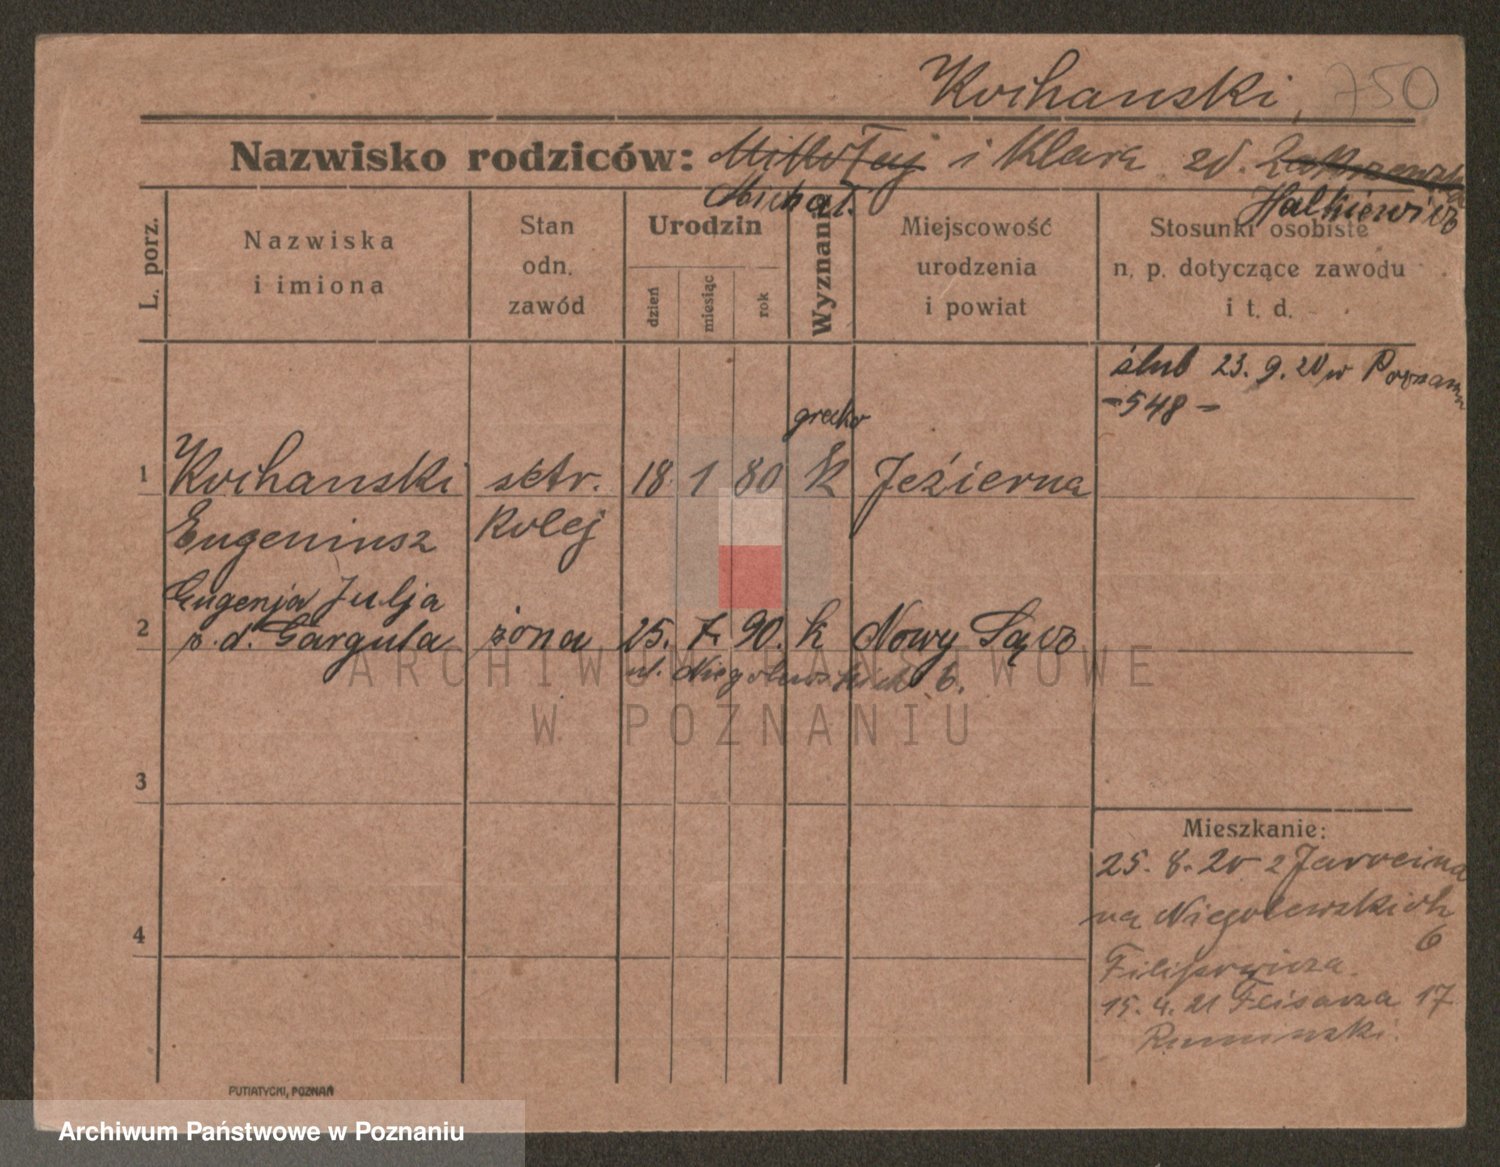 Kochanski, 750
Nazwisko rodziców: Mikołaj i Klara zd.
Michał. Halkiewicz
L. porz.
Nazwiska
i imiona
Stan
odn.
zawód
Urodzin
dzień
miesiąc
rok
Wyznanie
Miejscowość
urodzenia
i powiat
Stosunki osobiste
n. p. dotyczące zawodu
i t. d.
ślub 23. 9. 20 w Poznaniu
-548-
grecko
1 Kochanski sekr. 18. 1 80 k Jeźierna
Eugeniusz kolej
Eugenja Julja
2 z. d. Gargula żona 25. 7. 90. k Nowy Sącz
ul. Niegolewskich 6.
ARCHIWUM PAŃSTWOWE
W POZNANIU
3
Mieszkanie:
25. 8. 20 z Jarocina
na Niegolewskich
6
4
Filipowicza.
15. 4. 21 17
Ruminski.
PUTIATYCKI, POZNAŃ
Archiwum Państwowe w Poznaniu